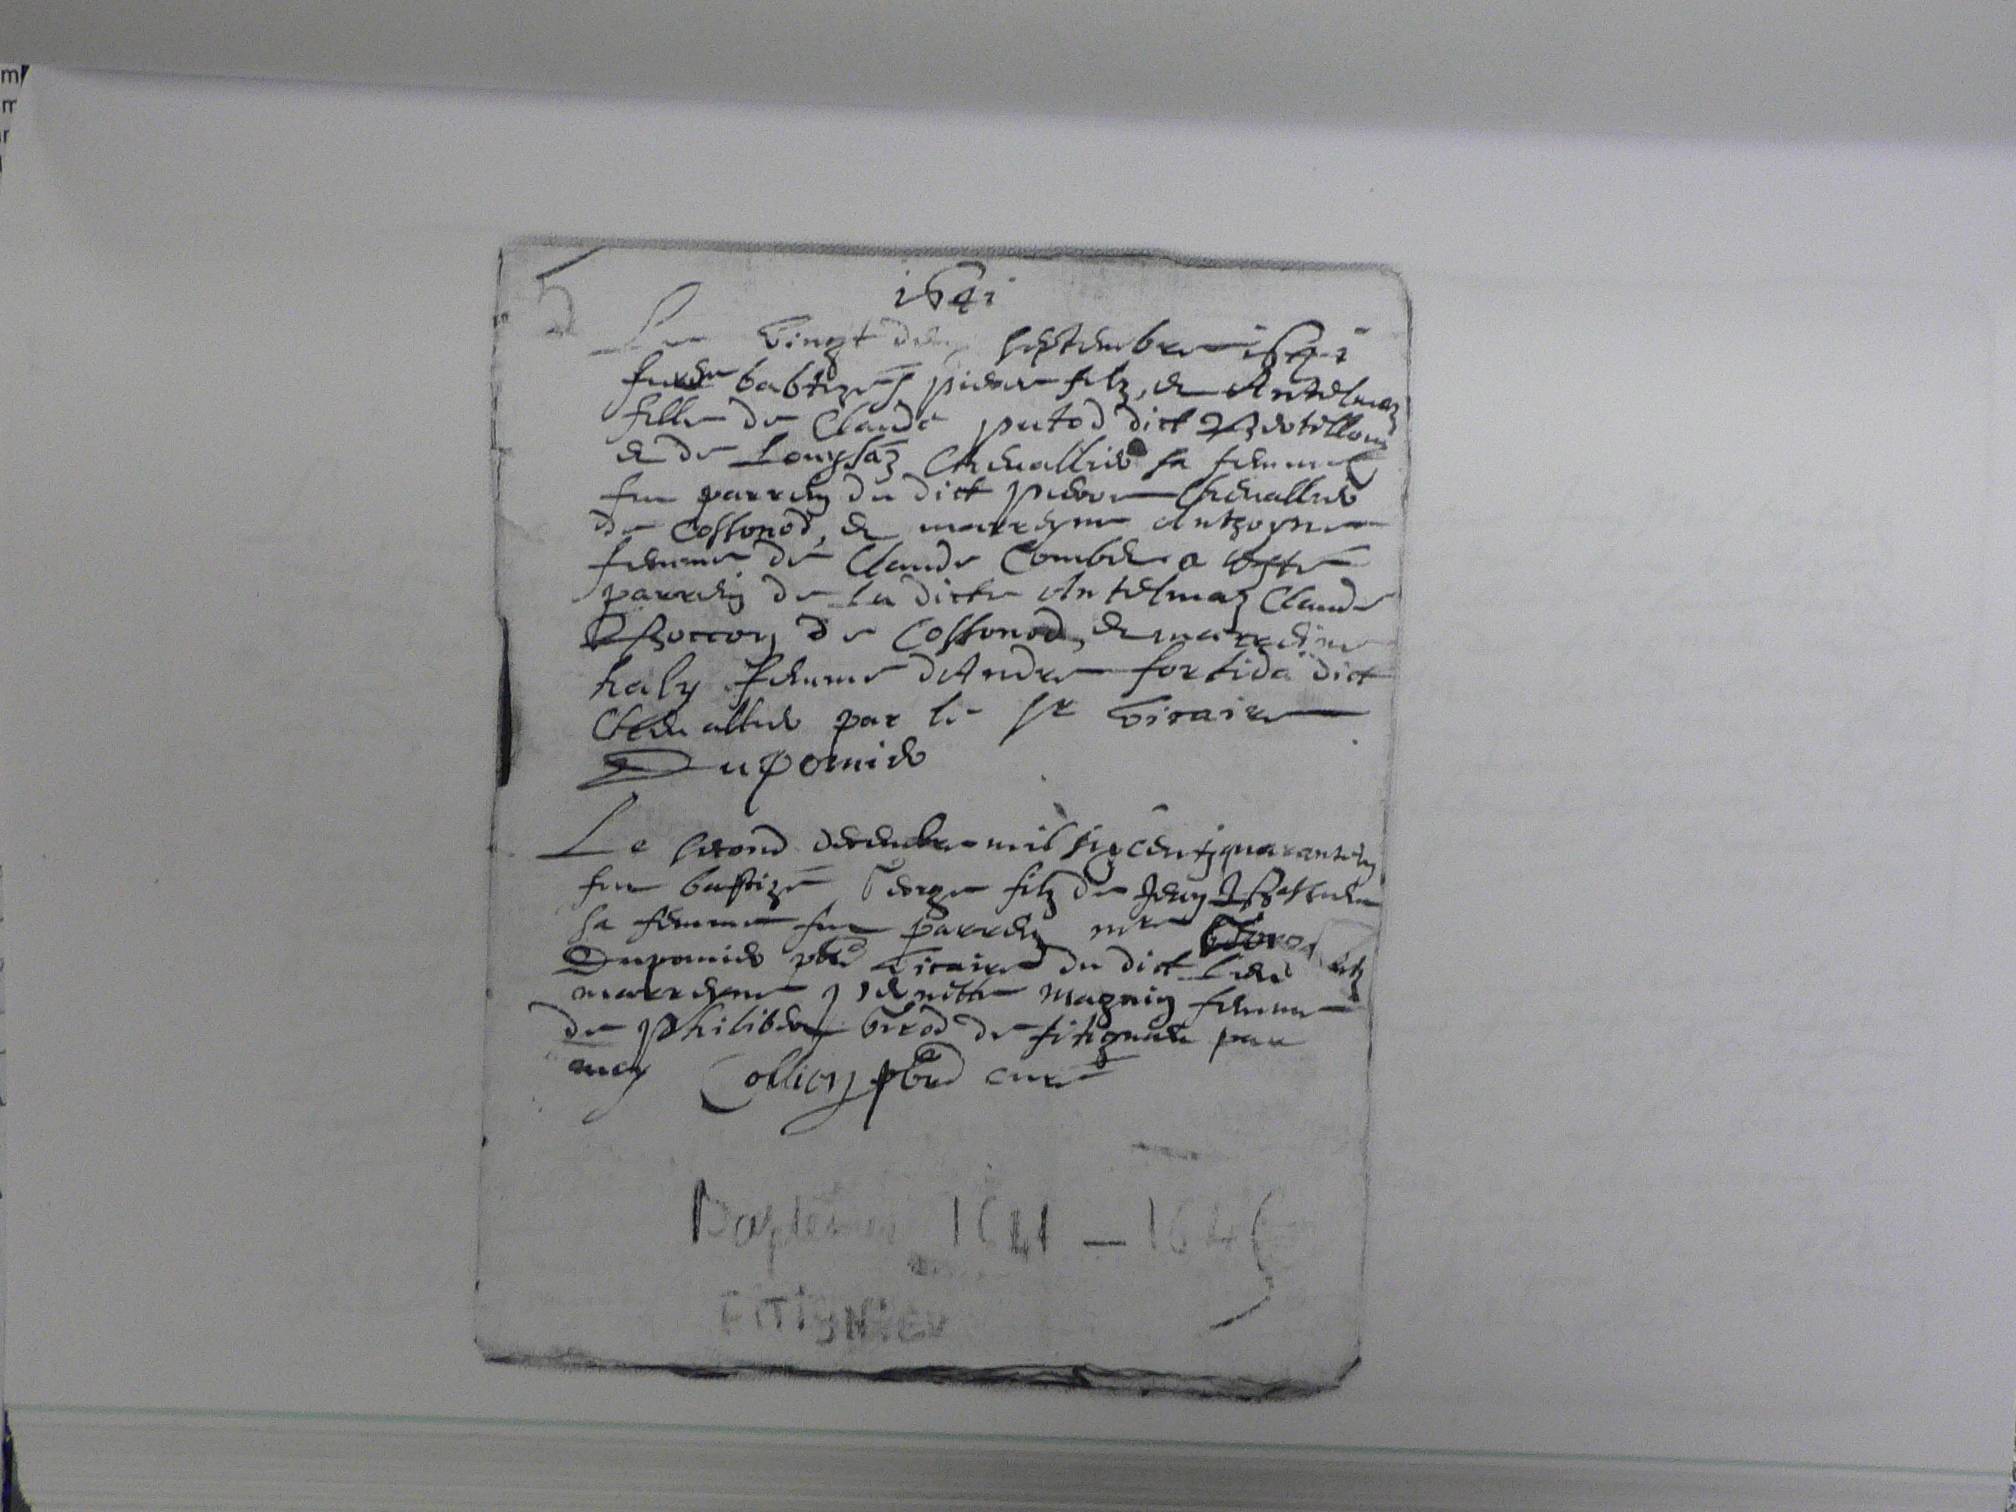 1641
Le vingt septembre 1641
furent babtizés pierre filz, et Antelmaz
fille de Claude putod dict
et de Louysaz Chevallier sa femme
fut parrein du dict pierre Chevallier
de Cossonod, et marreyne Anthoyne
femme de Claude Combet a esté
parrein de la dicte Antelmaz Claude
de Cossonod, et marreine
haly femme dAndre dict
Chevallier par le Sr vicaire
Dupomier
Le second decembre mil six centz quarante un
fut baptizé George filz de Jean
sa femme fut parrein mre
Dupomier pbre vicaire du dict lieu et
marreyne magnin femme
de philibert de fitignieu par
moy Collion pbre curé
Baptemes 1641 – 1645
FITIGNIEU